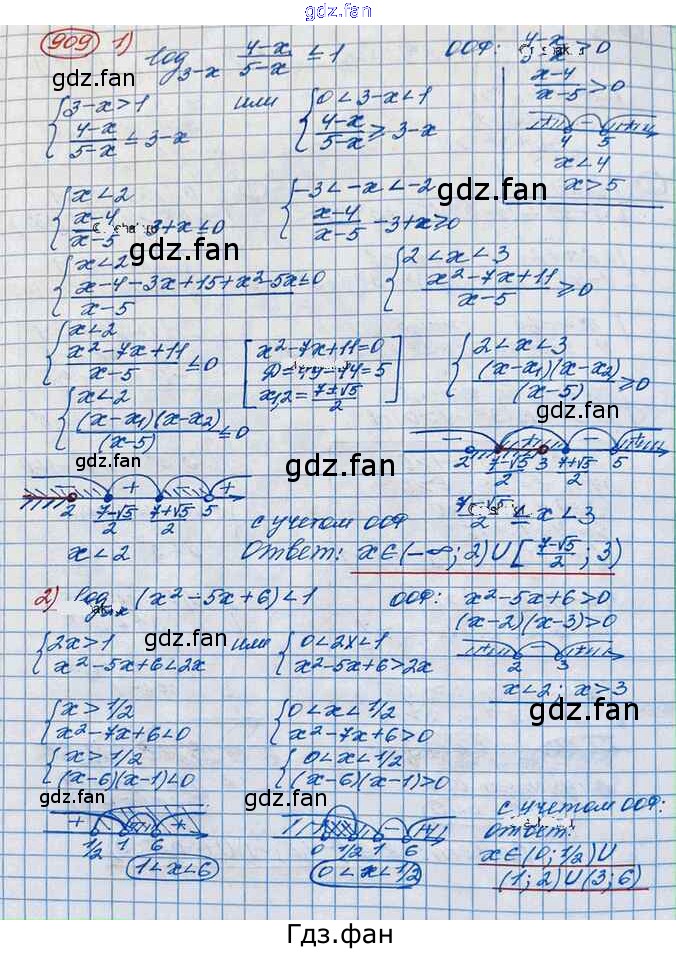 gdz.fan
909 1) log₃₋ₓ (4-x)/(5-x) ≤ 1
ООФ: (4-x)/(5-x) > 0
(x-4)/(x-5) > 0
4 5
x < 4
x > 5
{ 3-x > 1
(4-x)/(5-x) ≤ 3-x
или
{ 0 < 3-x < 1
(4-x)/(5-x) ≥ 3-x
gdz.fan
gdz.fan
{ x < 2
(x-4)/(x-5) - 3+x ≤ 0
{ -3 < -x < -2
(x-4)/(x-5) - 3+x ≥ 0
gdz.fan
gdz.fan
{ x < 2
(x-4-3x+15+x²-5x)/(x-5) ≤ 0
{ 2 < x < 3
(x²-7x+11)/(x-5) ≥ 0
gdz.fan
{ x < 2
(x²-7x+11)/(x-5) ≤ 0
[ x²-7x+11=0
D=49-44=5
x₁,₂=(7±√5)/2 ]
{ 2 < x < 3
(x-x₁)(x-x₂)/(x-5) ≥ 0
gdz.fan
{ x < 2
(x-x₁)(x-x₂)/(x-5) ≤ 0
gdz.fan
gdz.fan
2 (7-√5)/2 3 (7+√5)/2 5
2 (7-√5)/2 (7+√5)/2 5
x < 2
с учетом ООФ
(7-√5)/2 ≤ x < 3
Ответ: x∈(-∞; 2)∪[(7-√5)/2; 3)
2) log₂ₓ (x²-5x+6) < 1
ООФ: x²-5x+6 > 0
(x-2)(x-3) > 0
2 3
x < 2; x > 3
{ 2x > 1
x²-5x+6 < 2x
или
{ 0 < 2x < 1
x²-5x+6 > 2x
gdz.fan
gdz.fan
{ x > 1/2
x²-7x+6 < 0
{ 0 < x < 1/2
x²-7x+6 > 0
gdz.fan
{ x > 1/2
(x-6)(x-1) < 0
{ 0 < x < 1/2
(x-6)(x-1) > 0
gdz.fan
gdz.fan
1/2 1 6
1 < x < 6
0 1/2 1 6
0 < x < 1/2
с учетом ООФ:
Ответ:
x∈(0; 1/2)∪
(1; 2)∪(3; 6)
Гдз.фан